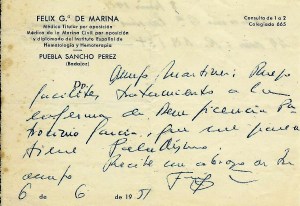 FELIX G.ª DE MARINA
Médico Titular por oposición
Médico de la Marina Civil por oposición
y diplomado del Instituto Español de
Hematología y Hemoterapia
PUEBLA SANCHO PEREZ
(Badajoz)
Consulta de 1 a 2
Colegiado 665
Amigo Martinez: Ruego
facilites tratamiento a la
enferma de Beneficencia Pa
trocinio Garcia, que me parece
tiene Paludismo.
Recibe un abrazo de tu
amigo
6 de 6 de 1951